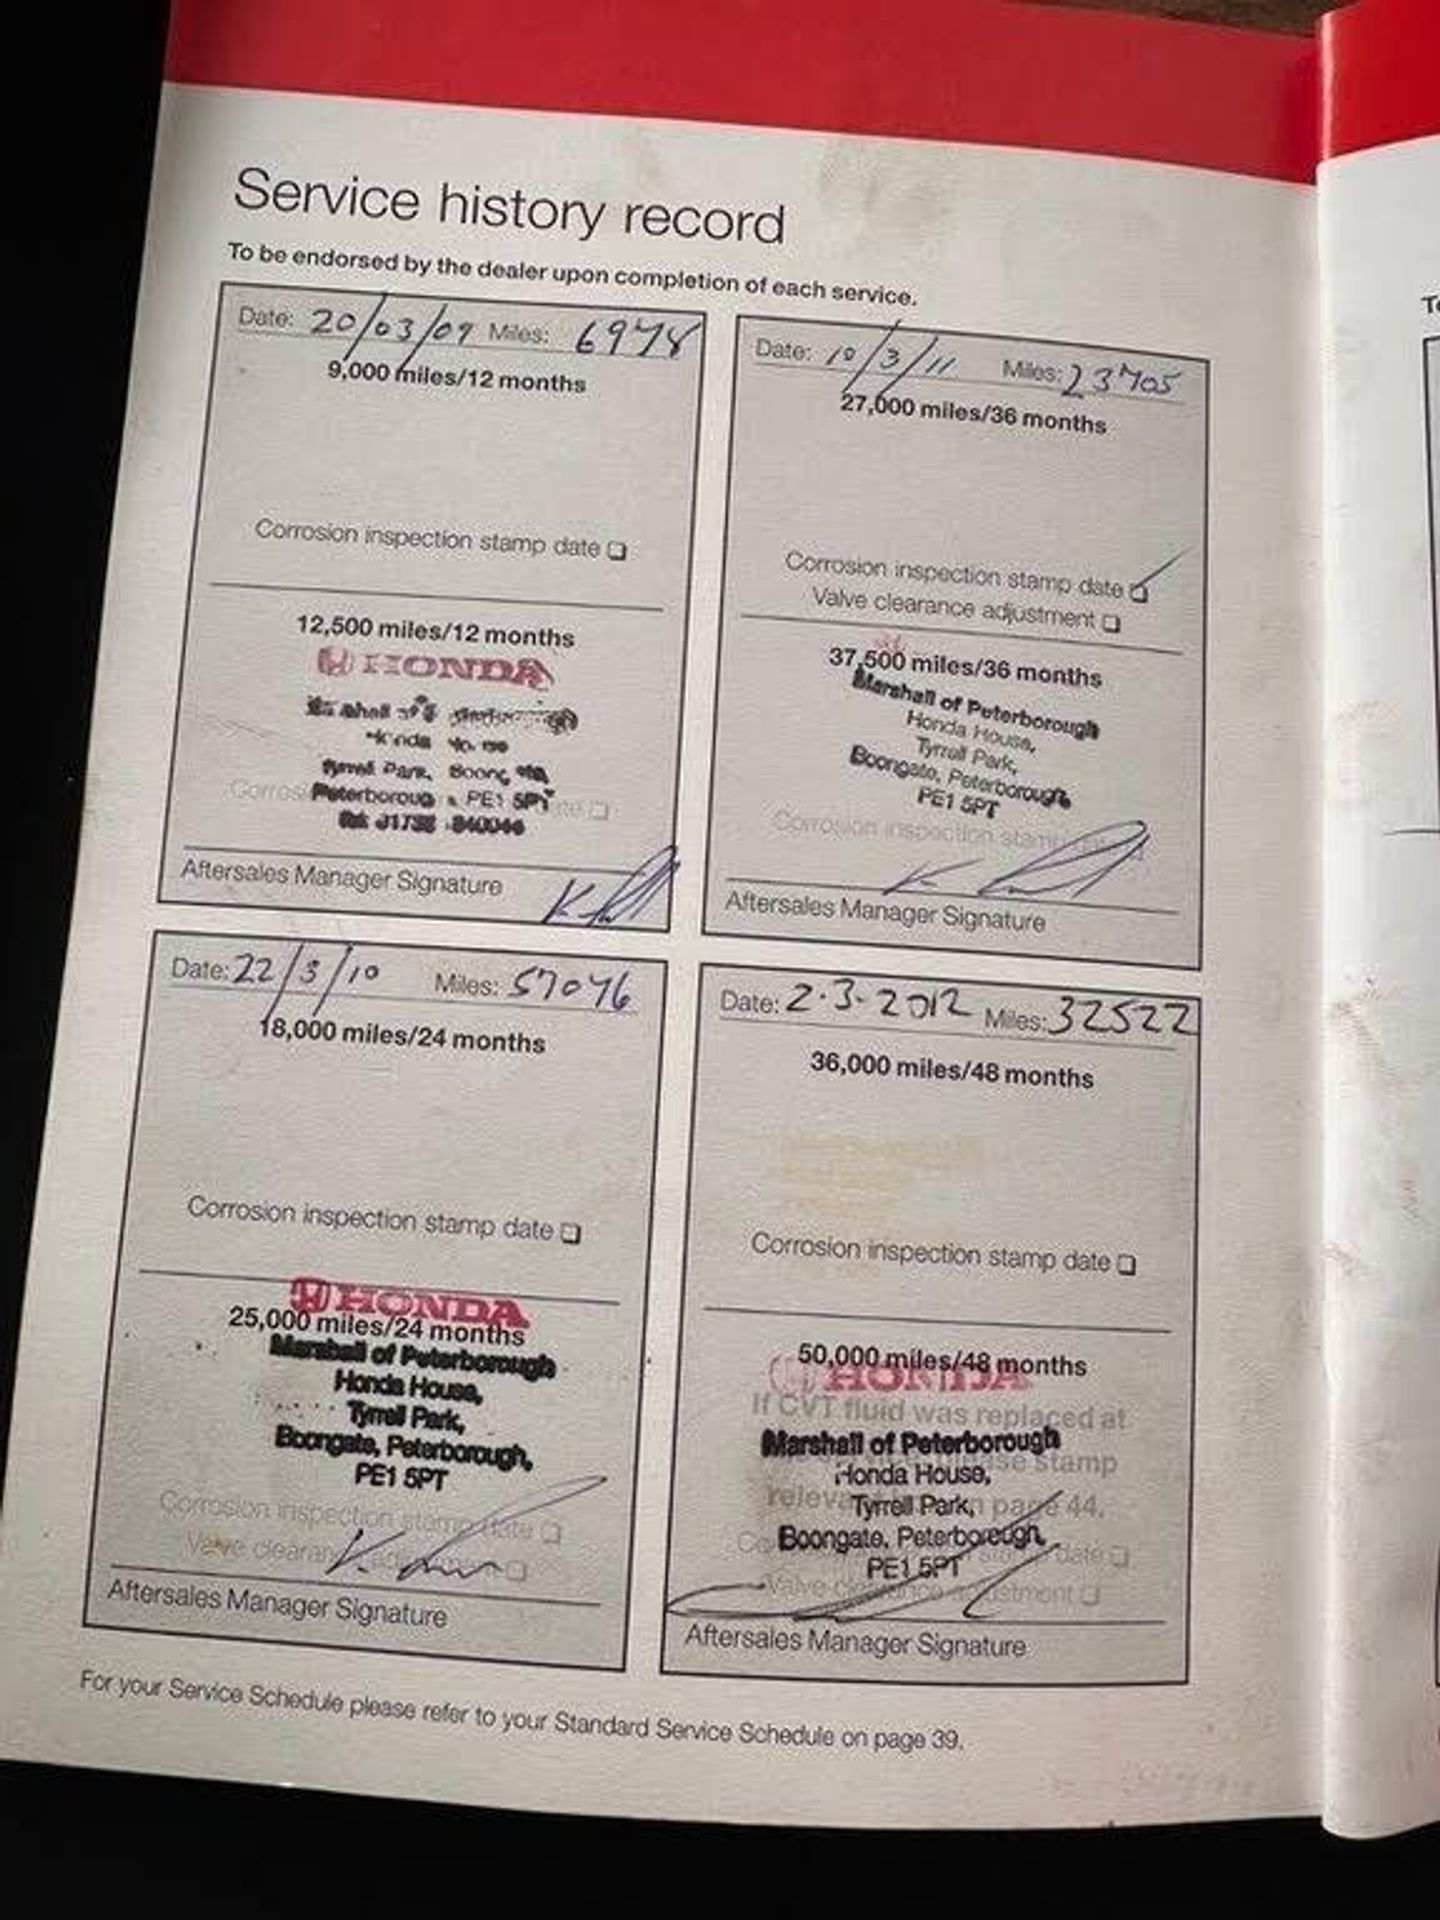 Service history record
To be endorsed by the dealer upon completion of each service.
Date: 20/03/09 Miles: 6978
9,000 miles/12 months
Corrosion inspection stamp date
12,500 miles/12 months
HONDA
Tyrrell Park,
Peterboroug PE1 5PT
Aftersales Manager Signature
Date: 22/3/10 Miles: 57046
18,000 miles/24 months
Corrosion inspection stamp date
HONDA
25,000 miles/24 months
Marshall of Peterborough
Honda House,
Tyrrell Park,
Boongate, Peterborough,
PE1 5PT
Corrosion inspection stamp date
Valve clearance adjustment
Aftersales Manager Signature
Date: 10/3/11 Miles: 23705
27,000 miles/36 months
Corrosion inspection stamp date
Valve clearance adjustment
37,500 miles/36 months
Marshall of Peterborough
Honda House,
Tyrrell Park,
Boongate, Peterborough,
PE1 5PT
Corrosion inspection stamp
Aftersales Manager Signature
Date: 2.3.2012 Miles: 32522
36,000 miles/48 months
Corrosion inspection stamp date
50,000 miles/48 months
HONDA
If CVT fluid was replaced at
Marshall of Peterborough
stamp
Honda House,
Tyrrell Park,
page 44.
Boongate, Peterborough,
date
PE1 5PT
Valve clearance adjustment
Aftersales Manager Signature
For your Service Schedule please refer to your Standard Service Schedule on page 39.